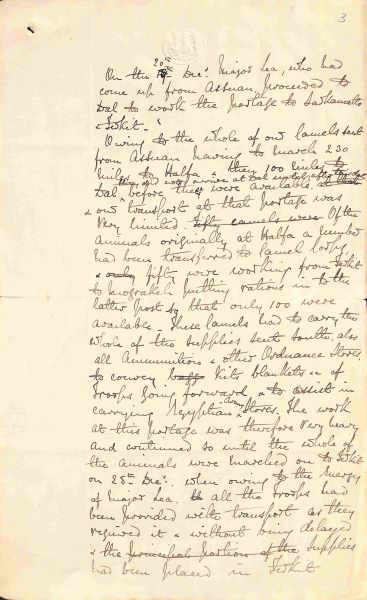 3
On the 20th Decr. Major Lea, who had
come up from Assuan, proceeded to
Dal to work the portage to Sarkamatto
& Sukit.
Owing to the whole of our Camels sent
from Assuan having to march 230
miles to Halfa & then 100 miles to
Dal they did not arrive at Dal until
before they were available
& our transport at that portage was
very limited. Fifty camels were Of the
animals originally at Halfa a number
had been transferred to Camel Corps
& only fifty were working from Sukit
to Mograkeh putting rations in to the
latter post so that only 100 were
available. These Camels had to carry the
whole of the supplies sent South, also
all Ammunition & other Ordnance Stores
to convey bagg Kits blankets &c of
troops going forward, & to assist in
carrying Egyptian Army Stores. The work
at this portage was therefore very heavy
and continued so until the whole of
the animals were marched on to Sukit
on 28th Decr. when owing to the energy
of Major Lea, all the troops had
been provided with transport as they
required it & without being delayed
& the principal portion of the supplies
had been placed in Sukit